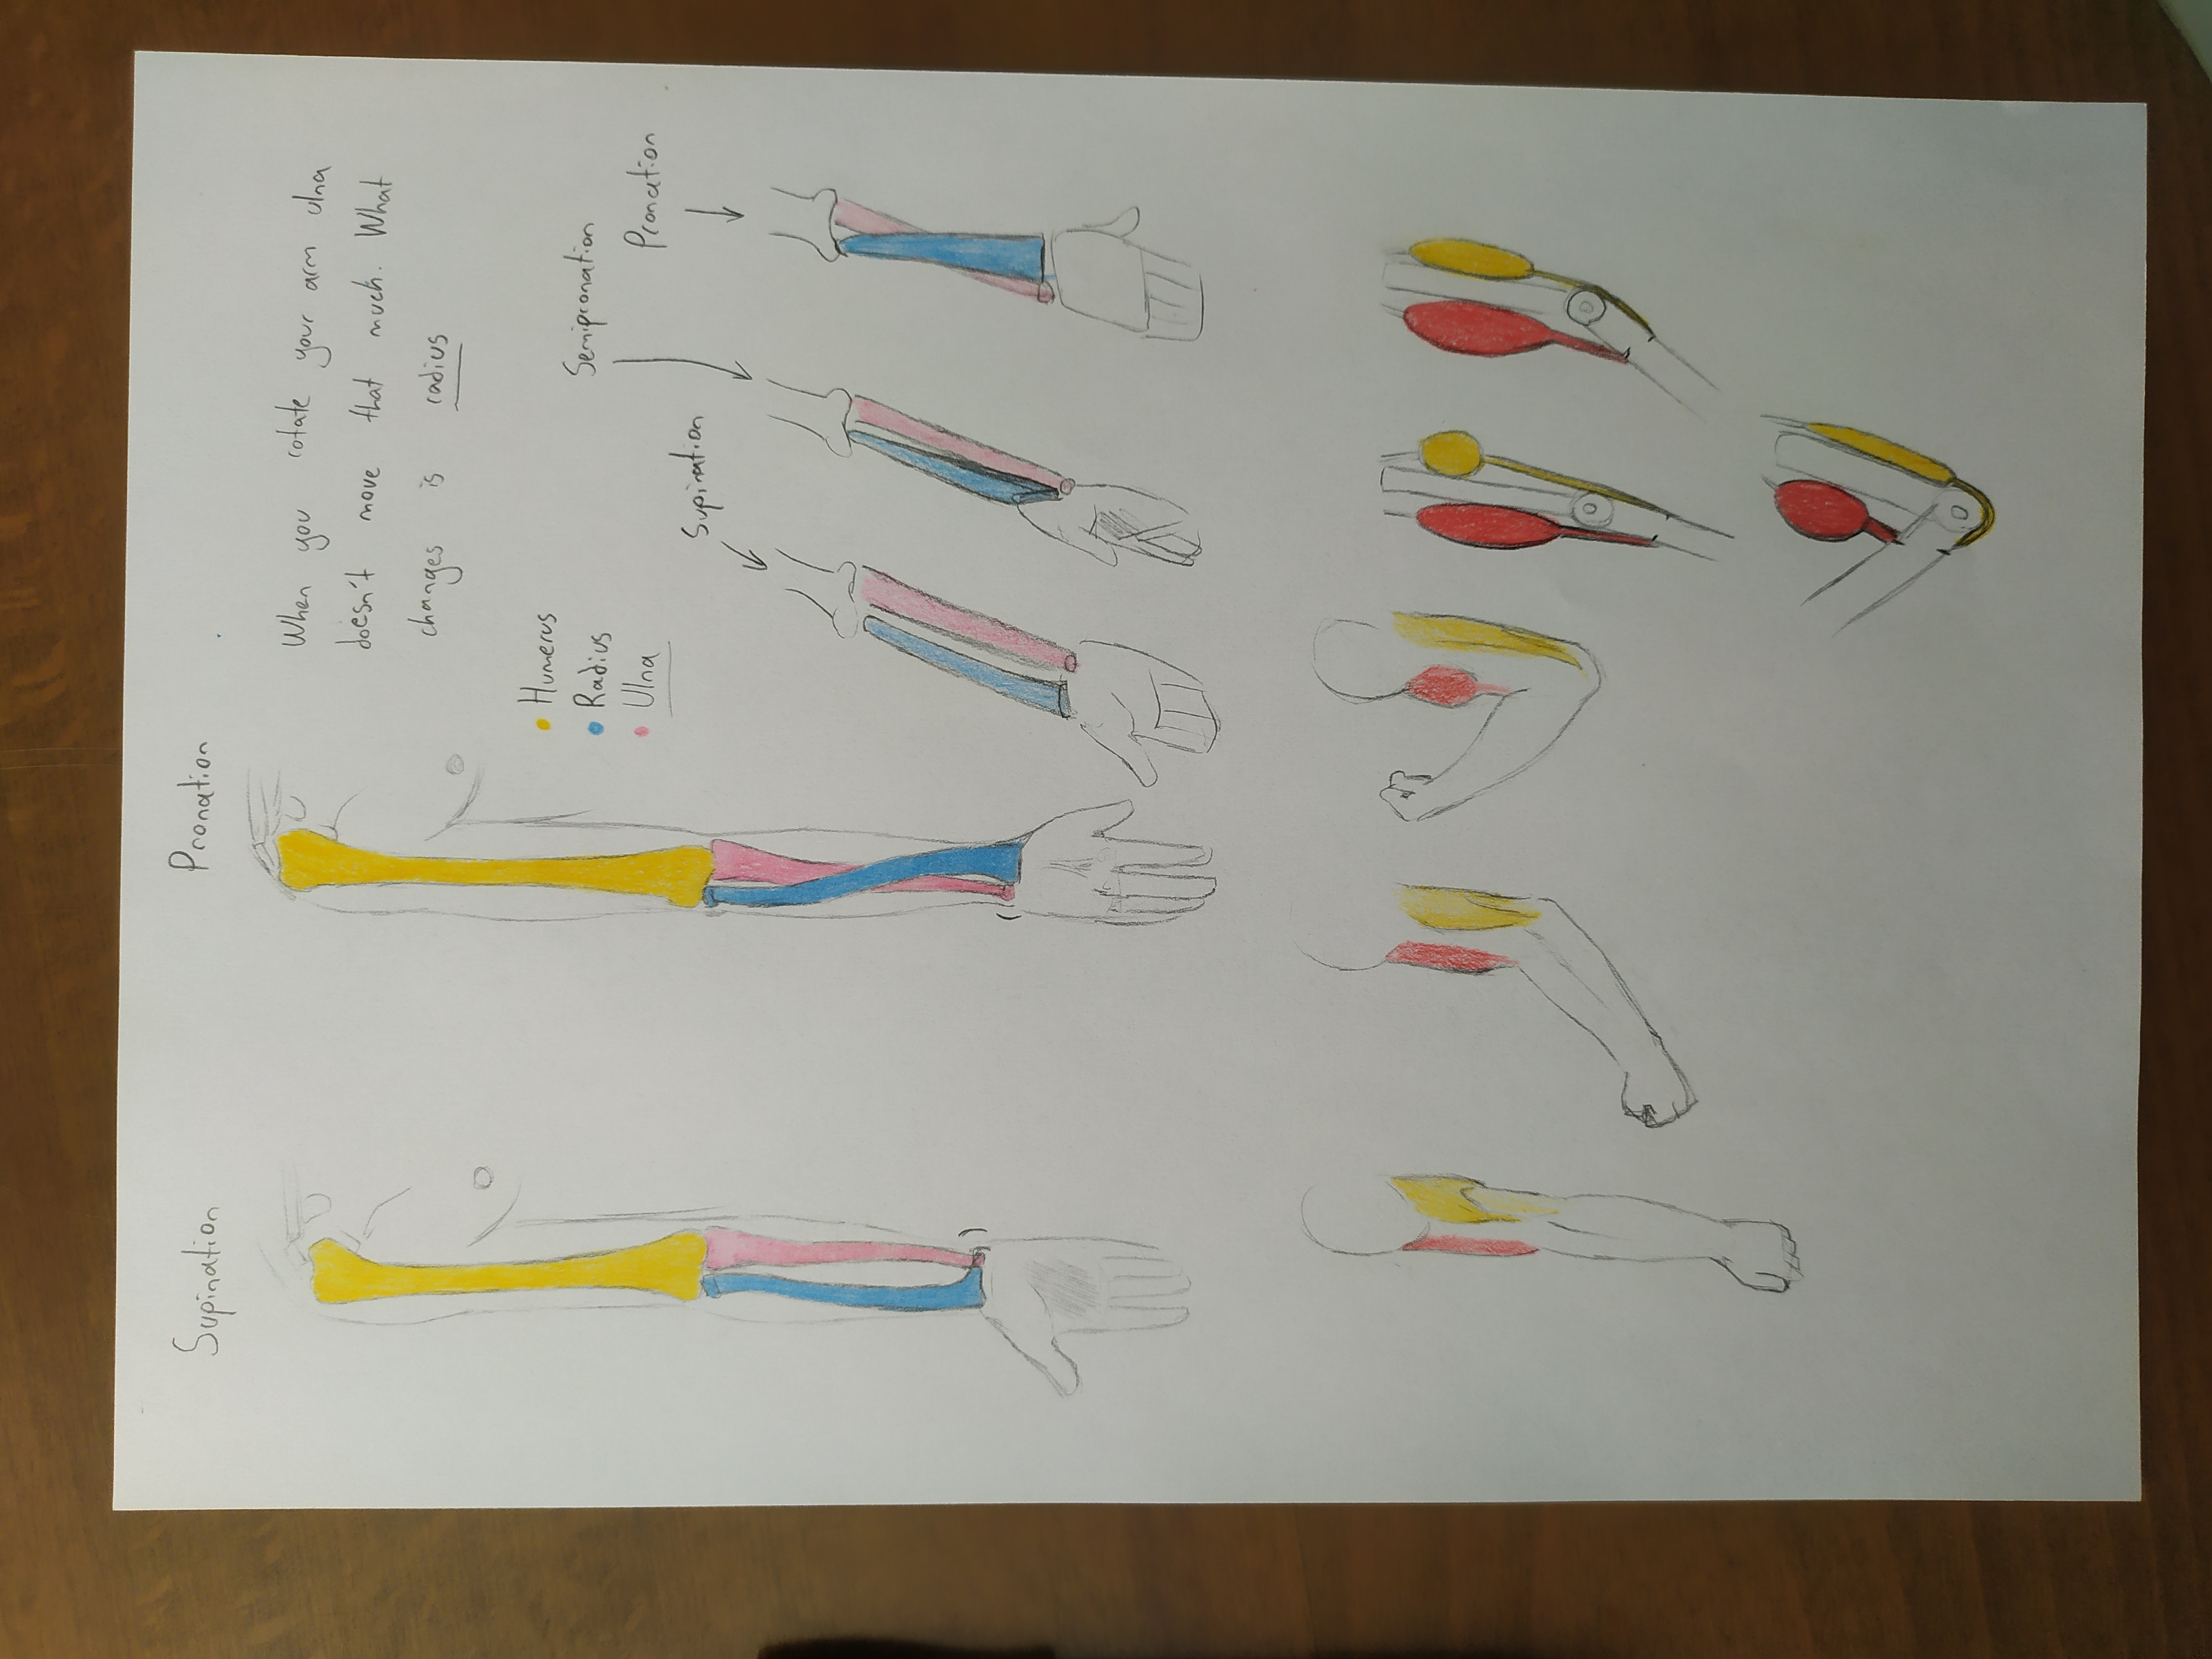 Supination
Pronation
When you rotate your arm ulna
doesn't move that much. What
changes is radius
Humerus
Radius
Ulna
Semipronation
Pronation
Supination